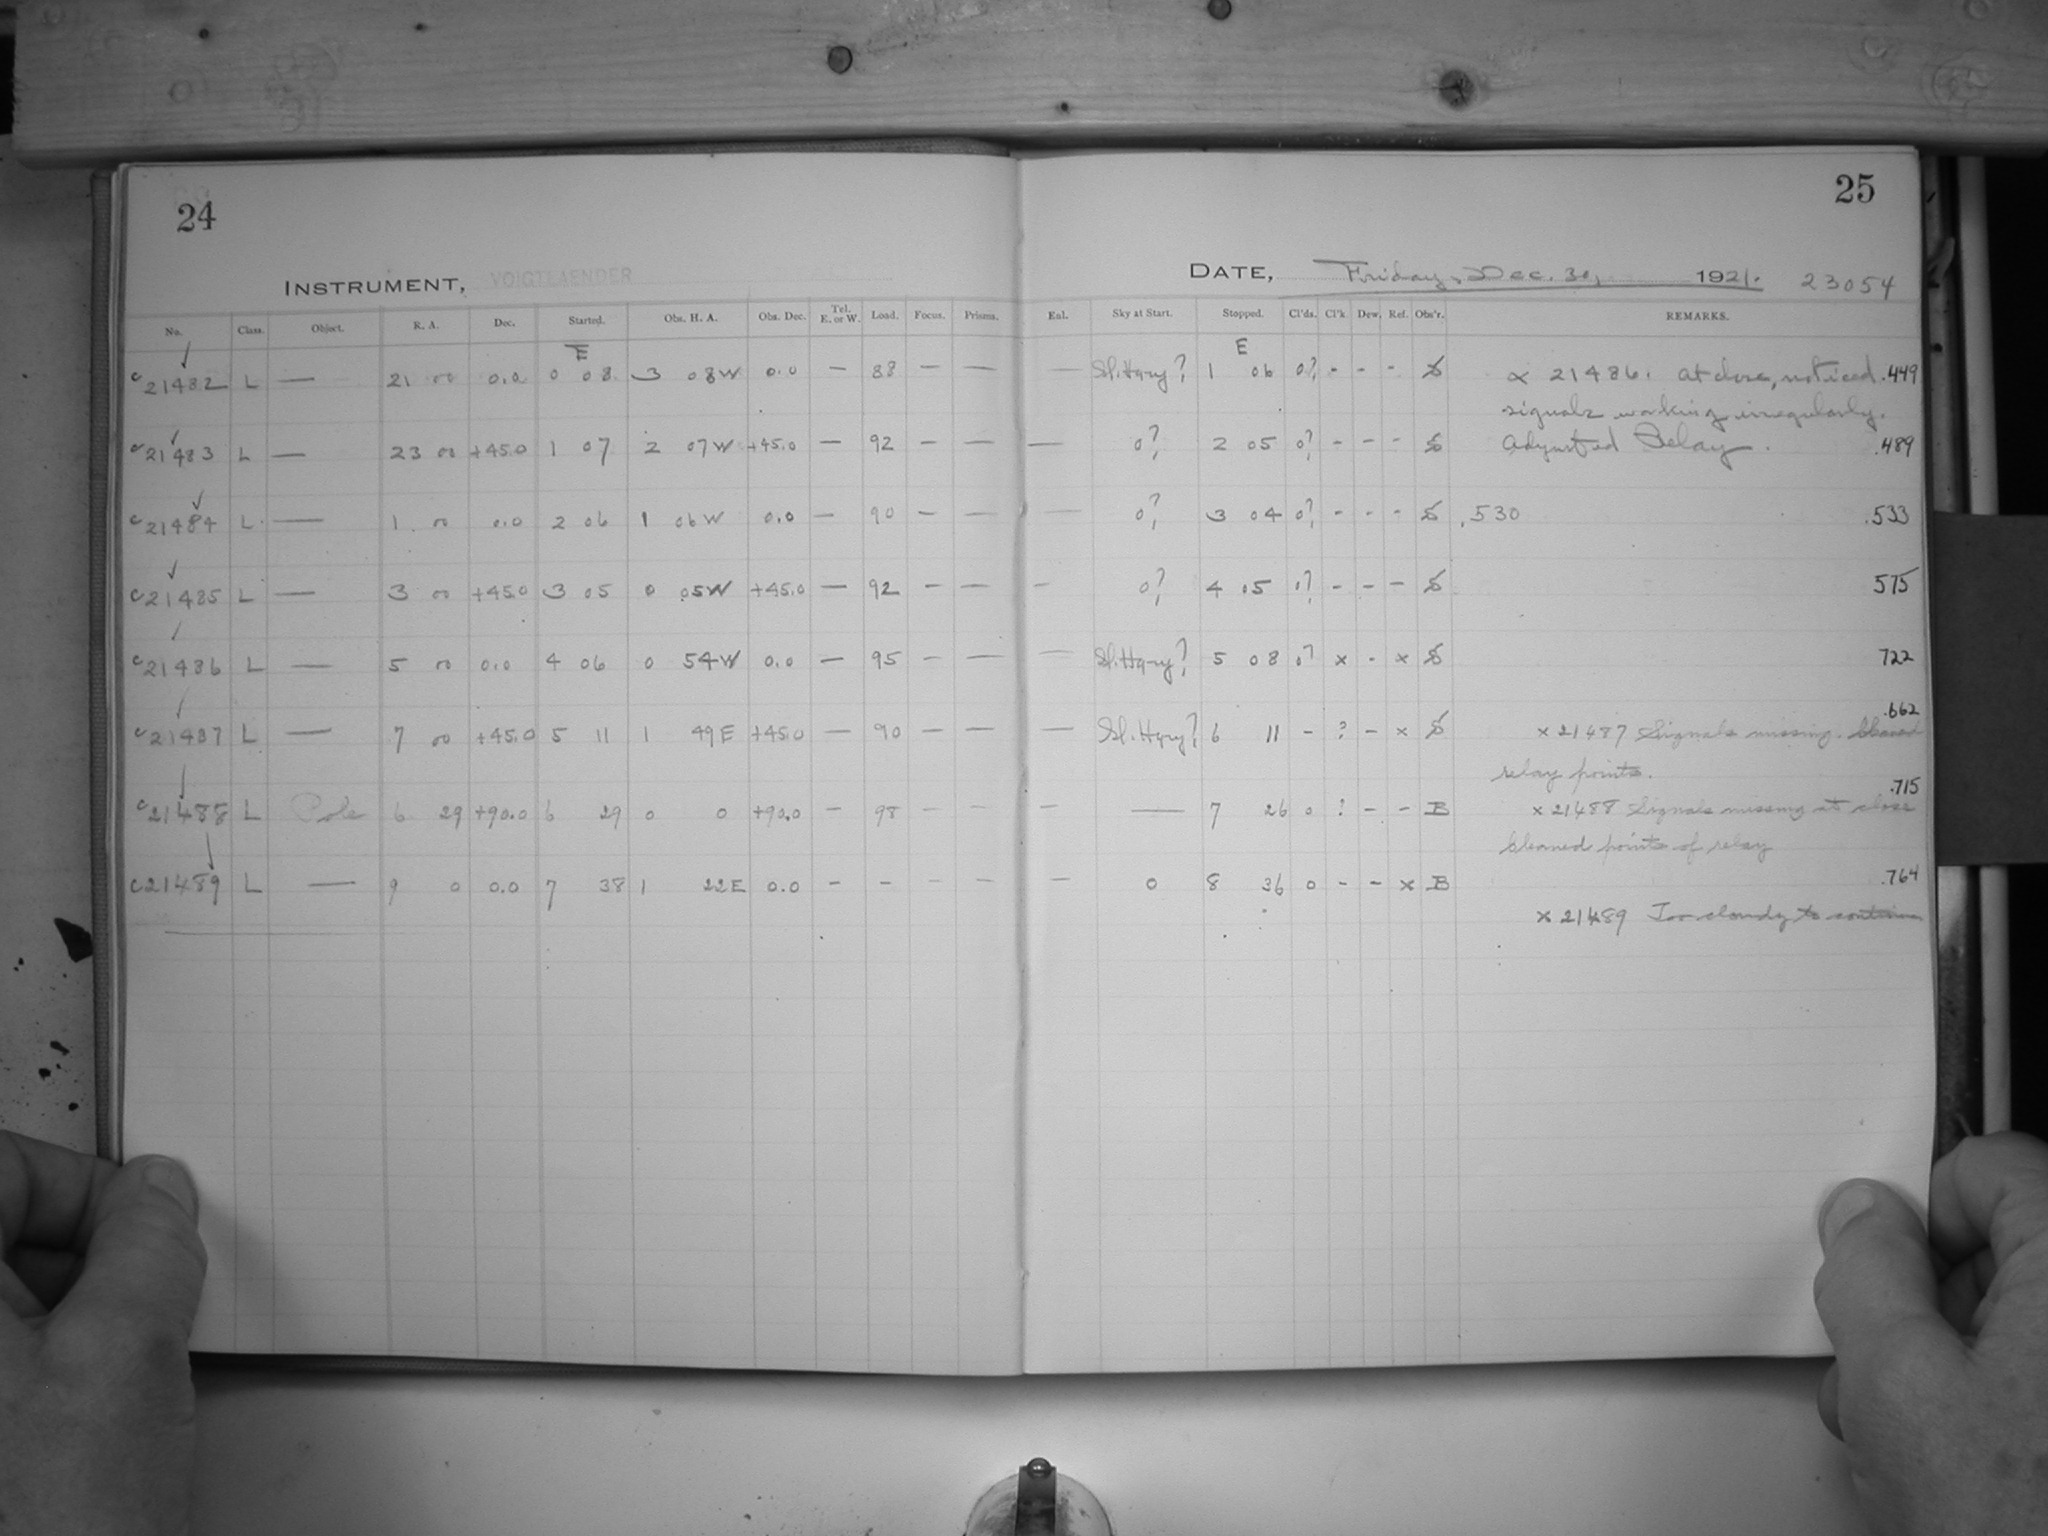 24
25
INSTRUMENT, VOIGTLAENDER
DATE, Friday, Dec. 30, 1921. 23054
No. Class. Object. R. A. Dec. Started. Obs. H. A. Obs. Dec. Tel. E. or W. Load. Focus. Prisms. Enl. Sky at Start. Stopped. Cl'ds. Cl'k. Dew. Ref. Obs'r. REMARKS.
E E
c21482 L — 21 00 0.0 0 08 3 08W 0.0 — 88 — — — Sl. Hazy? 1 06 0? - - - S x 21486. At close, noticed .449
signals working irregularly.
c21483 L — 23 00 +45.0 1 07 2 07W +45.0 — 92 — — — 0? 2 05 0? - - - S Adjusted Relay. .489
c21484 L. — 1 00 0.0 2 06 1 06W 0.0 — 90 — — — 0? 3 04 0? - - - S .530 .533
c21485 L — 3 00 +45.0 3 05 0 05W +45.0 — 92 — — — 0? 4 05 0? - - - S 575
c21486 L — 5 00 0.0 4 06 0 54W 0.0 — 95 — — — Sl. Hazy? 5 08 0? x - x S 722
.662
c21487 L — 7 00 +45.0 5 11 1 49E +45.0 — 90 — — — Sl. Hazy? 6 11 - ? - x S x 21487 Signals missing. Cleaned
relay points.
.715
c21488 L Pole 6 29 +90.0 6 29 0 0 +90.0 - 98 - - — — 7 26 0 ? - - B x 21488 Signals missing at close
Cleaned points of relay
c21489 L — 9 0 0.0 7 38 1 22E 0.0 - - - — — 0 8 36 0 - - x B .764
x 21489 Too cloudy to continue